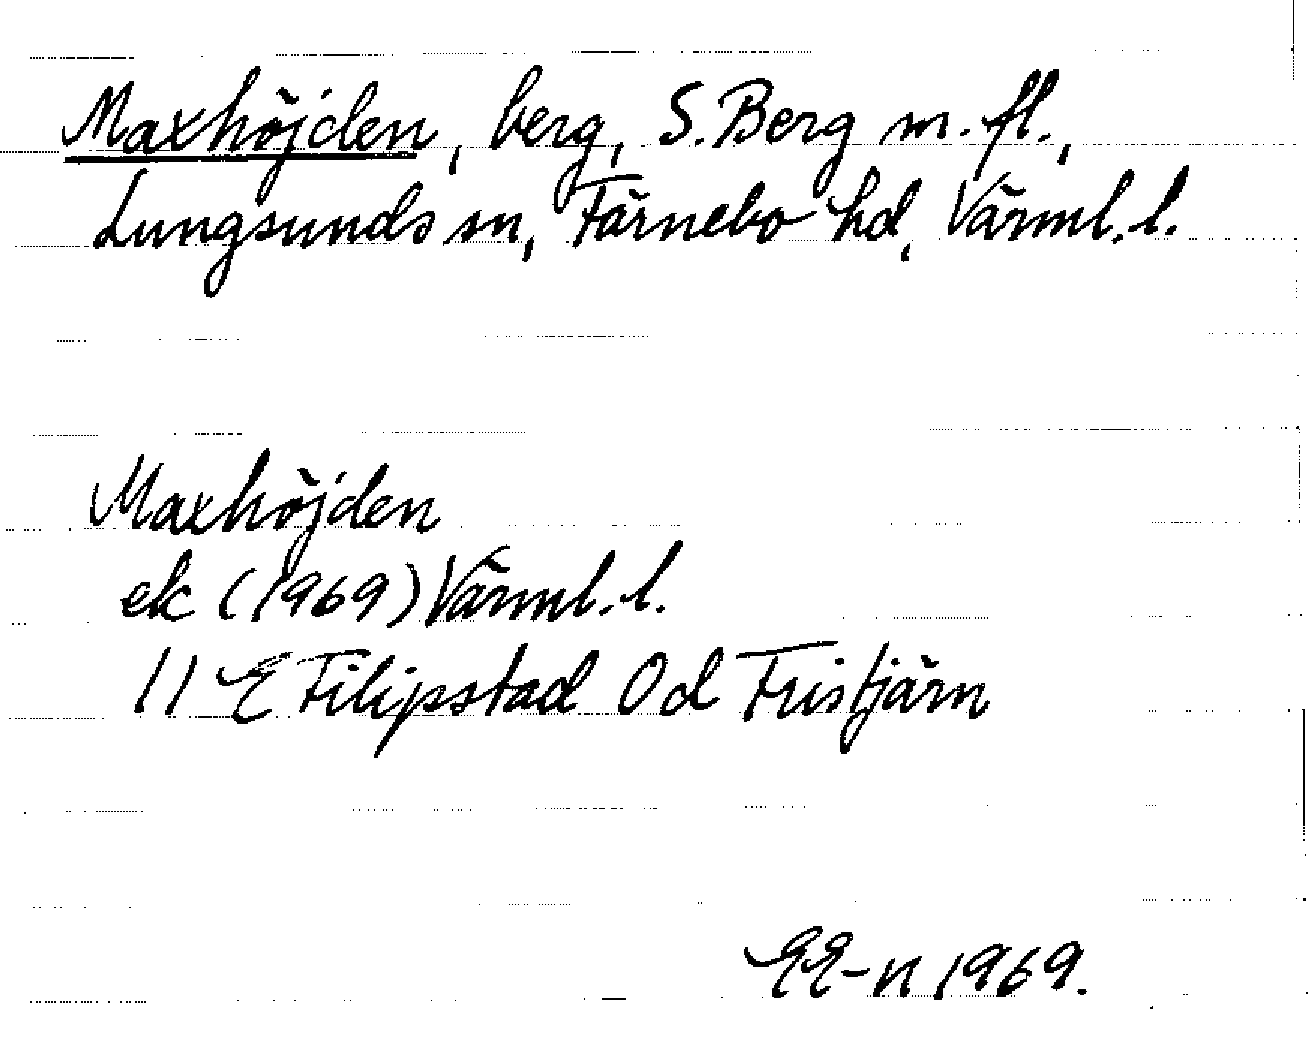 Maxhöjden, berg, S. Berg m. fl.,
Lungsunds sn, Färnebo hd, Värml. l.
Maxhöjden
ek (1969) Värml. l.
11 E Filipstad 0d Fristjärn
EE-n 1969.